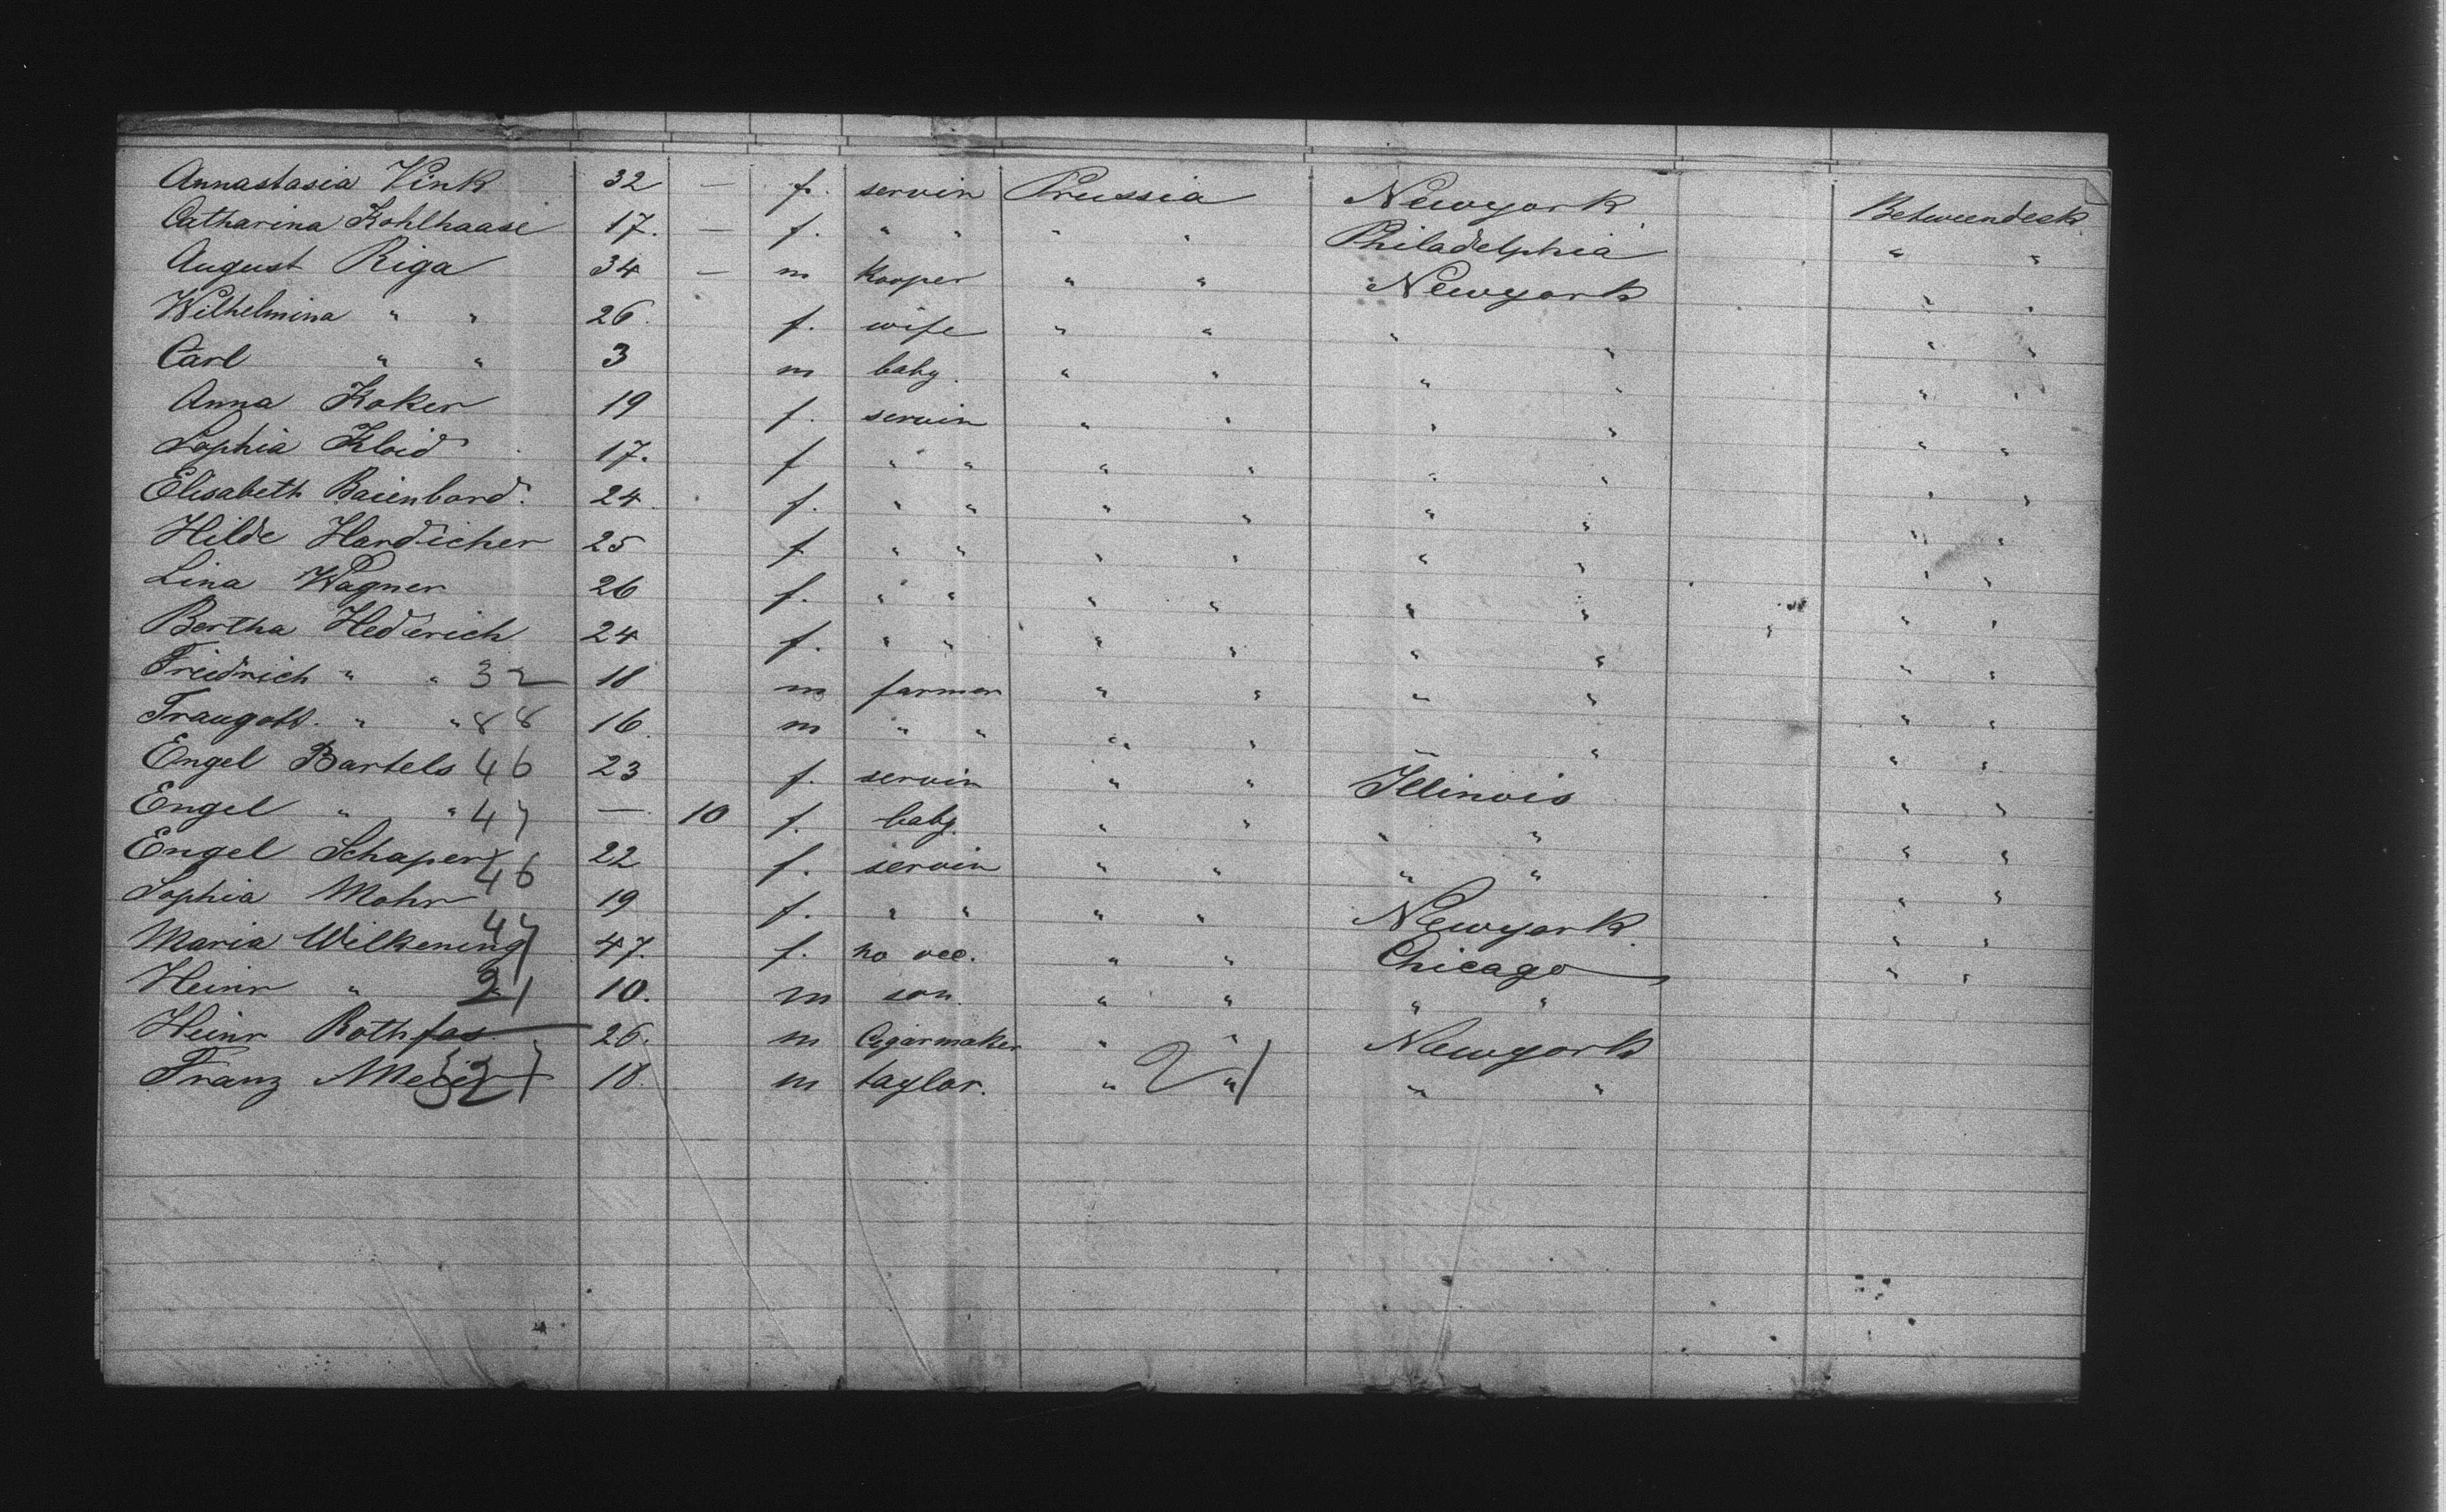 Annastasia Vink 32 — f. servin Prussia Newyork Betweendeck.
Catharina Kohlhaase 17. — f. " " " " Philadelphia " "
August Riga 34 — m Kooper " " Newyork " "
Wilhelmina " " 26. f. wife " " " " " "
Carl " " 3 m baby. " " " " " "
Anna Koker 19 f. servin " " " " " "
Sophia Kloid 17. f " " " " " " " "
Elisabeth Baienbord. 24. f. " " " " " " " "
Hilde Hardicher 25 f " " " " " " " "
Lina Wagner 26 f. " " " " " " " "
Bertha Hederich 24 f. " " " " " " " "
Friedrich " " 32 18 m farmer " " " " " "
Traugott. " " 88 16. m " " " " " " " "
Engel Bartels 46 23 f. servin " " Illinois " "
Engel " " 47 — 10 f. baby. " " " " " "
Engel Schaper 46 22 f. servin " " " " " "
Sophia Mohr 19 f. " " " " Newyork. " "
Maria Wilkening 47 47. f. no occ. " " Chicago " "
Heinr " " 21 10. m son. " " " "
Heinr Rothfos 26. m Cigarmaker " " Newyork
Franz Meier 32 18. m taylor. " " 21 " "